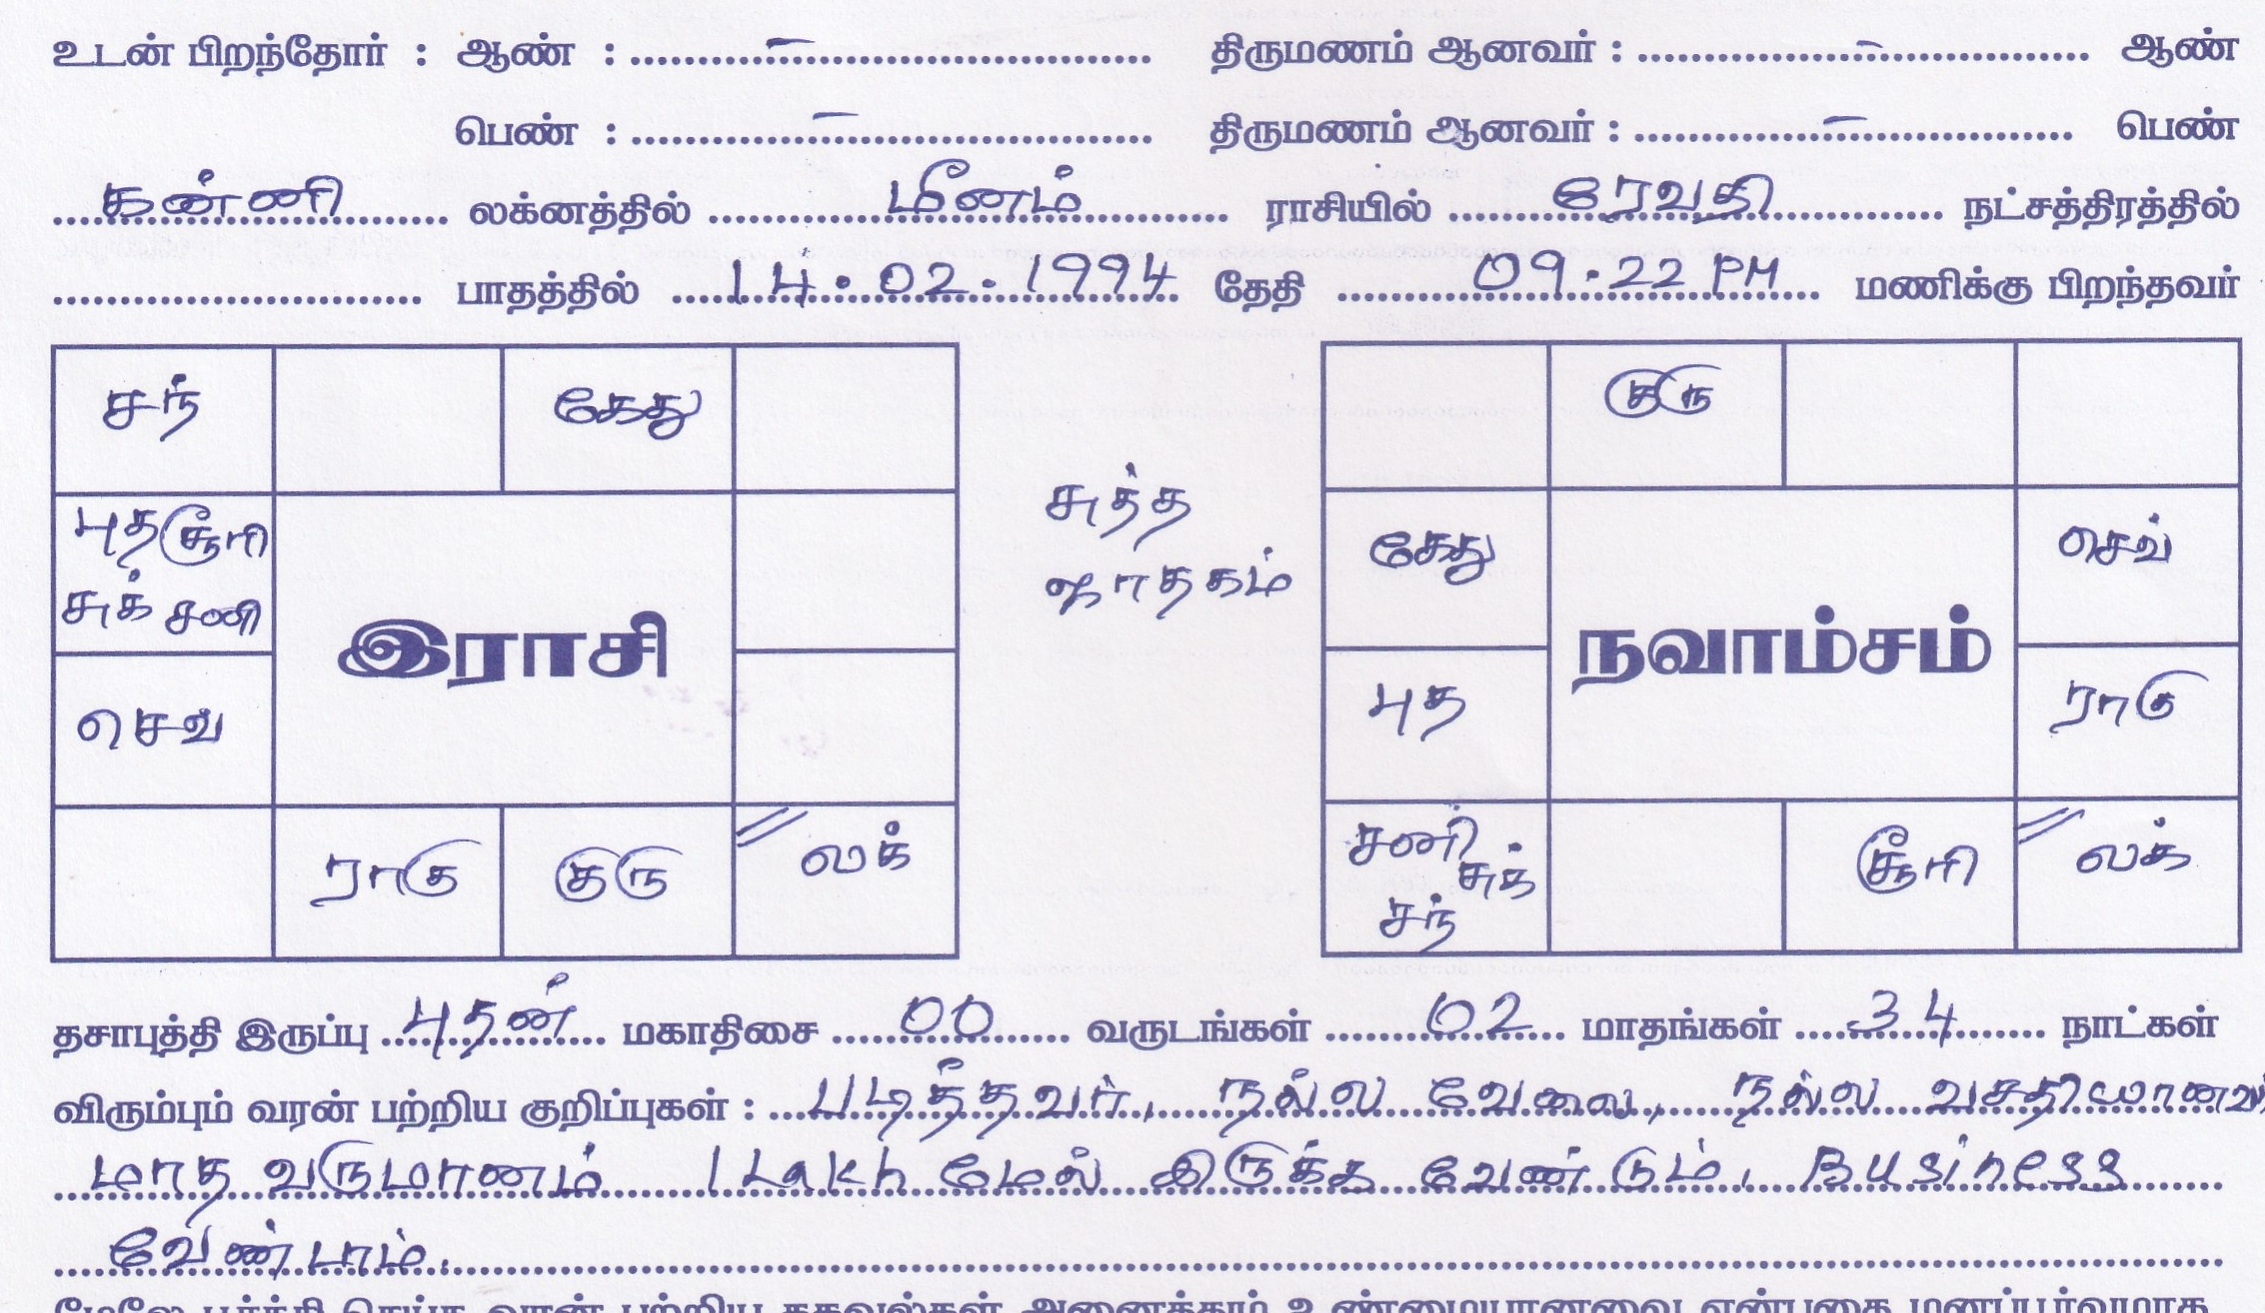 உடன் பிறந்தோர் : ஆண் : ........ – ........ திருமணம் ஆனவர் : ........ – ........ ஆண்
பெண் : ........ – ........ திருமணம் ஆனவர் : ........ – ........ பெண்
கன்னி லக்னத்தில் மீனம் ராசியில் ரேவதி நட்சத்திரத்தில்
........ பாதத்தில் 14.02.1994 தேதி 09.22 PM மணிக்கு பிறந்தவர்
சந் கேது
புத சூரி
சுக் சனி
இராசி
செவ்
ராகு குரு லக்
சுத்த
ஜாதகம்
குரு
கேது செவ்
நவாம்சம்
புத ராகு
சனி சுக் சந் சூரி லக்
தசாபுத்தி இருப்பு புதன் மகாதிசை 00 வருடங்கள் 02 மாதங்கள் 34 நாட்கள்
விரும்பும் வரன் பற்றிய குறிப்புகள் : படித்தவர், நல்ல வேலை, நல்ல வசதியானவர்
மாத வருமானம் 1 Lakh மேல் இருக்க வேண்டும், Business
வேண்டாம்.
மேலே பூர்த்தி செய்த வரன் பற்றிய தகவல்கள் அனைத்தும் உண்மையானவை என்பதை மனப்பூர்வமாக